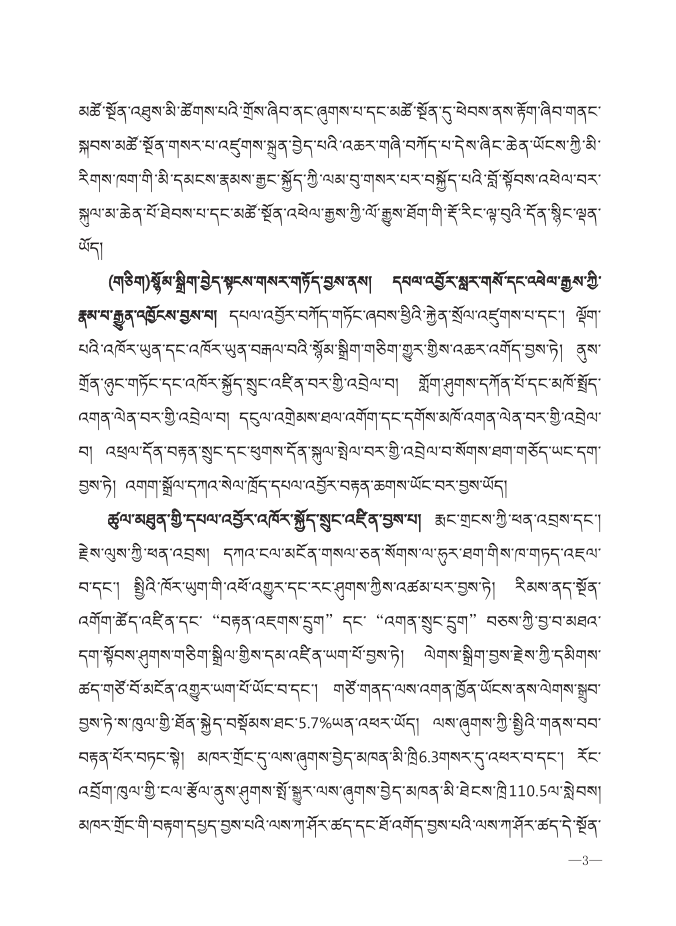 མཚོ་སྔོན་འཐུས་མི་ཚོགས་པའི་གྲོས་ཞིབ་ནང་ཞུགས་པ་དང་མཚོ་སྔོན་དུ་ཕེབས་ནས་རྟོག་ཞིབ་གནང་
སྐབས་མཚོ་སྔོན་གསར་པ་འཛུགས་སྐྲུན་བྱེད་པའི་འཆར་གཞི་བཀོད་པ་དེས་ཞིང་ཆེན་ཡོངས་ཀྱི་མི་
རིགས་ཁག་གི་མི་དམངས་རྣམས་རྒྱང་སྐྱོད་ཀྱི་ལམ་བུ་གསར་པར་བསྐྱོད་པའི་བློ་སྟོབས་འཕེལ་བར་
སྐུལ་མ་ཆེན་པོ་ཐེབས་པ་དང་མཚོ་སྔོན་འཕེལ་རྒྱས་ཀྱི་ལོ་རྒྱུས་ཐོག་གི་རྡོ་རིང་ལྟ་བུའི་དོན་སྙིང་ལྡན་
ཡོད།
(གཅིག)སྙོམ་སྒྲིག་བྱེད་སྟངས་གསར་གཏོད་བྱས་ནས། དཔལ་འབྱོར་སླར་གསོ་དང་འཕེལ་རྒྱས་ཀྱི་
རྣམ་པ་རྒྱུན་འཁྱོངས་བྱས་བ། དཔལ་འབྱོར་བཀོད་གཏོང་ཞབས་ཕྱིའི་རྐྱེན་སྲོལ་འཛུགས་པ་དང་། ལྡོག་
པའི་འཁོར་ཡུན་དང་འཁོར་ཡུན་བརྒལ་བའི་སྙོམ་སྒྲིག་གཅིག་གྱུར་གྱིས་འཆར་འགོད་བྱས་ཏེ། ནུས་
གྲོན་ཉུང་གཏོང་དང་འཁོར་སྐྱོད་སྲུང་འཛིན་བར་གྱི་འབྲེལ་བ། གློག་ཤུགས་དཀོན་པོ་དང་མཁོ་སྤྲོད་
འགན་ལེན་བར་གྱི་འབྲེལ་བ། དངུལ་འགྲེམས་ཐལ་འགོག་དང་དགོས་མཁོ་འགན་ལེན་བར་གྱི་འབྲེལ་
བ། འཕྲལ་དོན་བརྟན་སྲུང་དང་ཕུགས་དོན་སྐུལ་སྤེལ་བར་གྱི་འབྲེལ་བ་སོགས་ཐག་གཅོད་ཡང་དག་
བྱས་ཏེ། འགག་སྒྲོལ་དཀའ་སེལ་ཁྲོད་དཔལ་འབྱོར་བརྟན་ཆགས་ཡོང་བར་བྱས་ཡོད།
ཚུལ་མཐུན་གྱི་དཔལ་འབྱོར་འཁོར་སྐྱོད་སྲུང་འཛིན་བྱས་པ། རྨང་གྲངས་ཀྱི་ཕན་འབྲས་དང་།
རྗེས་ལུས་ཀྱི་ཕན་འབྲས། དཀའ་ངལ་མངོན་གསལ་ཅན་སོགས་ལ་ཧུར་ཐག་གིས་ཁ་གཏད་འཇལ་
བ་དང་། སྤྱིའི་ཁོར་ཡུག་གི་འཕོ་འགྱུར་དང་རང་ཤུགས་ཀྱིས་འཚམ་པར་བྱས་ཏེ། རིམས་ནད་སྔོན་
འགོག་ཚོད་འཛིན་དང་ “བརྟན་འཇགས་དྲུག” དང་ “འགན་སྲུང་དྲུག” བཅས་ཀྱི་བྱ་བ་མཐའ་
དག་སྟོབས་ཤུགས་གཅིག་སྒྲིལ་གྱིས་དམ་འཛིན་ཡག་པོ་བྱས་ཏེ། ལེགས་སྒྲིག་བྱས་རྗེས་ཀྱི་དམིགས་
ཚད་གཙོ་བོ་མངོན་འགྱུར་ཡག་པོ་ཡོང་བ་དང་། གཙོ་གནད་ལས་འགན་ཁྱོན་ཡོངས་ནས་ལེགས་སྒྲུབ་
བྱས་ཏེ་ས་ཁུལ་གྱི་ཐོན་སྐྱེད་བསྡོམས་ཐང་5.7%ཡན་འཕར་ཡོད། ལས་ཞུགས་ཀྱི་སྤྱིའི་གནས་བབ་
བརྟན་པོར་བཏང་སྟེ། མཁར་གྲོང་དུ་ལས་ཞུགས་བྱེད་མཁན་མི་ཁྲི6.3གསར་དུ་འཕར་བ་དང་། རོང་
འབྲོག་ཁུལ་གྱི་ངལ་རྩོལ་ནུས་ཤུགས་སྤོ་སྒྱུར་ལས་ཞུགས་བྱེད་མཁན་མི་ཐེངས་ཁྲི110.5ལ་སླེབས།
མཁར་གྲོང་གི་བརྟག་དཔྱད་བྱས་པའི་ལས་ཀ་ཤོར་ཚད་དང་ཐོ་འགོད་བྱས་པའི་ལས་ཀ་ཤོར་ཚད་དེ་སྔོན་
—3—